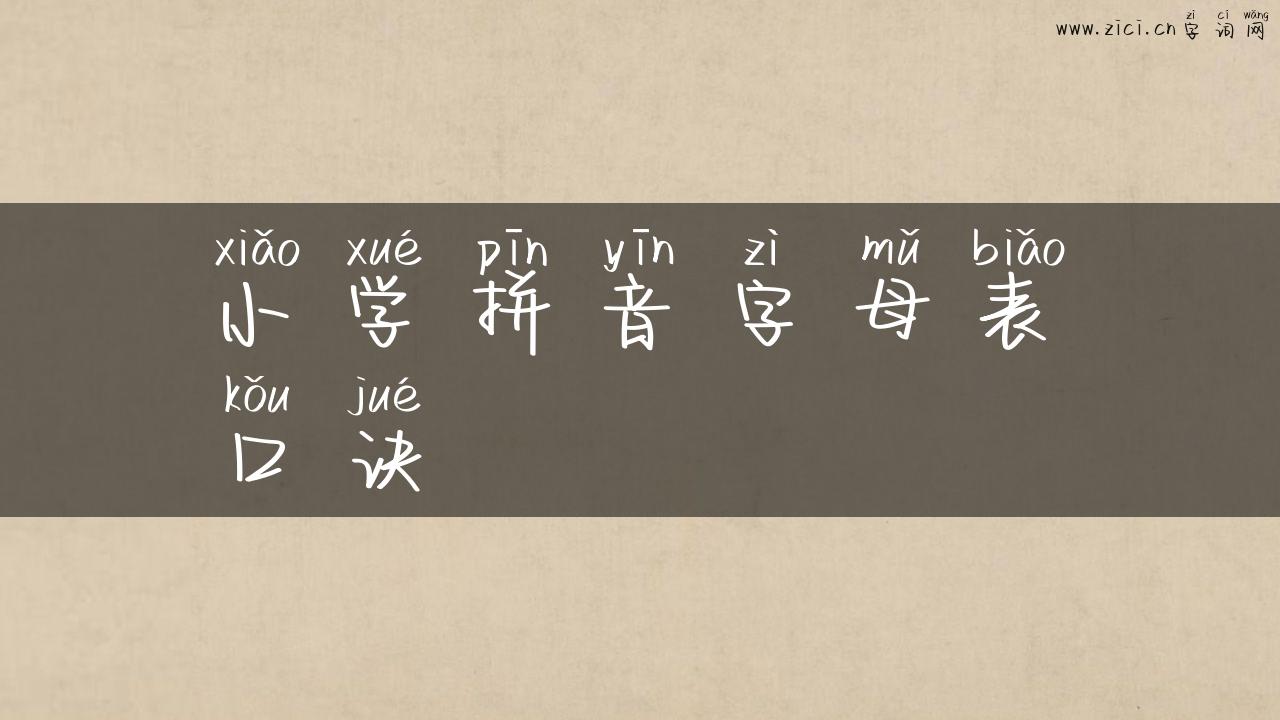 zì cí wǎng
www.zici.cn 字词网
xiǎo xué pīn yīn zì mǔ biǎo
小学拼音字母表
kǒu jué
口诀